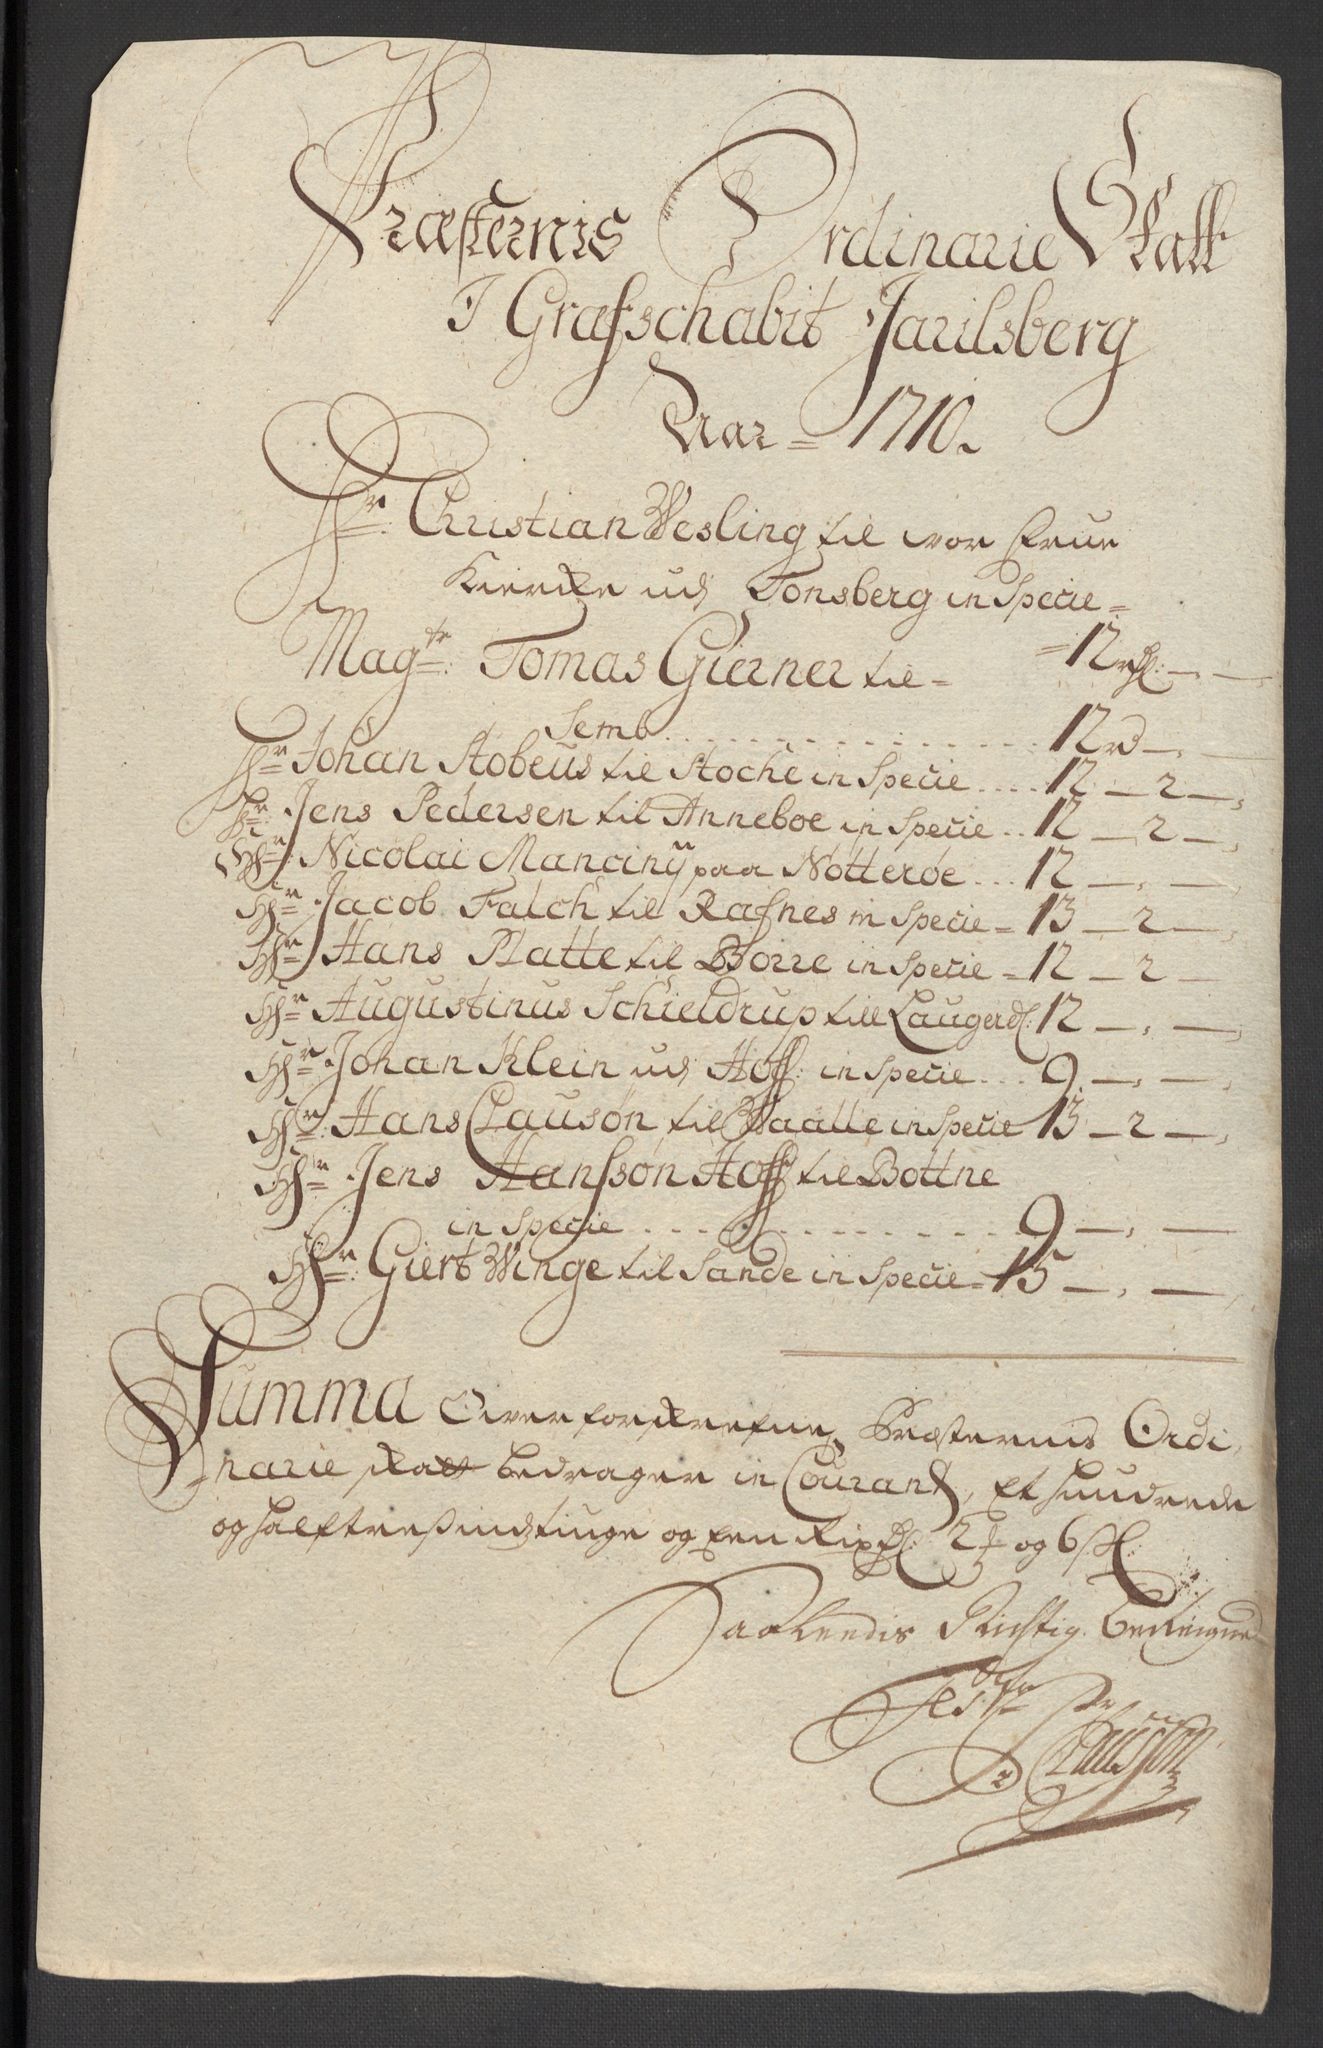 Præsternis Ordinarie Skatt
I Grafschabit Jarilsberg
Aar = 1710.
Hr: Christian Wesling til vor Frue
Kiercke udj Tonsberg in Specie =
Magtr: Tomas Gierner til - = 12 rdl: - , -
Semb . . . . . . . . . . . . . . . . . . 12 rd - , -
Hr Johan Stobeus til Stoche in Specie . . . . 12 - 2 - ,
Hr: Jens Pedersen til Anneboe in Specie . . 12 - 2 - ,
Hr: Nicolai Mancinÿ paa Nøtterøe . . . 12 - , - ,
Hr Jacob Falch til Rafnes in Specie = 13 - 2 - ,
Hr Hans Platte til Borre in Specie = 12 - 2 -
Hr Augustinus Schieldrup till Laugerdl: 12 - , - ,
Hr Johan Klein udj Hoff: in Specie . . . 9 - , - ,
Hr: Hans Clausøn til Waalle in Specie 13 - 2 - ,
Hr Jens Hansson Hoff til Bottne
in Specie . . . . . . . . . . . . . . . . . 9 - , -
Hr: Giert Winge til Sande in Specie = 15 - , - ,
Summa Over forskrefne Præsternis Ordi,
narie skatt bedrager in Courant, Et hundrede
og halftresindstiuge og Een Rixdl: 2 ƒ og 6 sl:
Saaledis Rigtig
Clausson